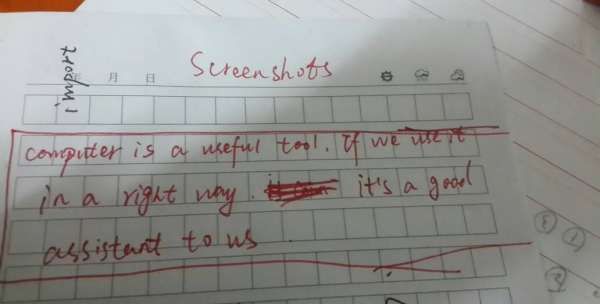 Screenshots
import
年 月 日
computer is a useful tool. If we use it
in a right way. it's a good
assistant to us